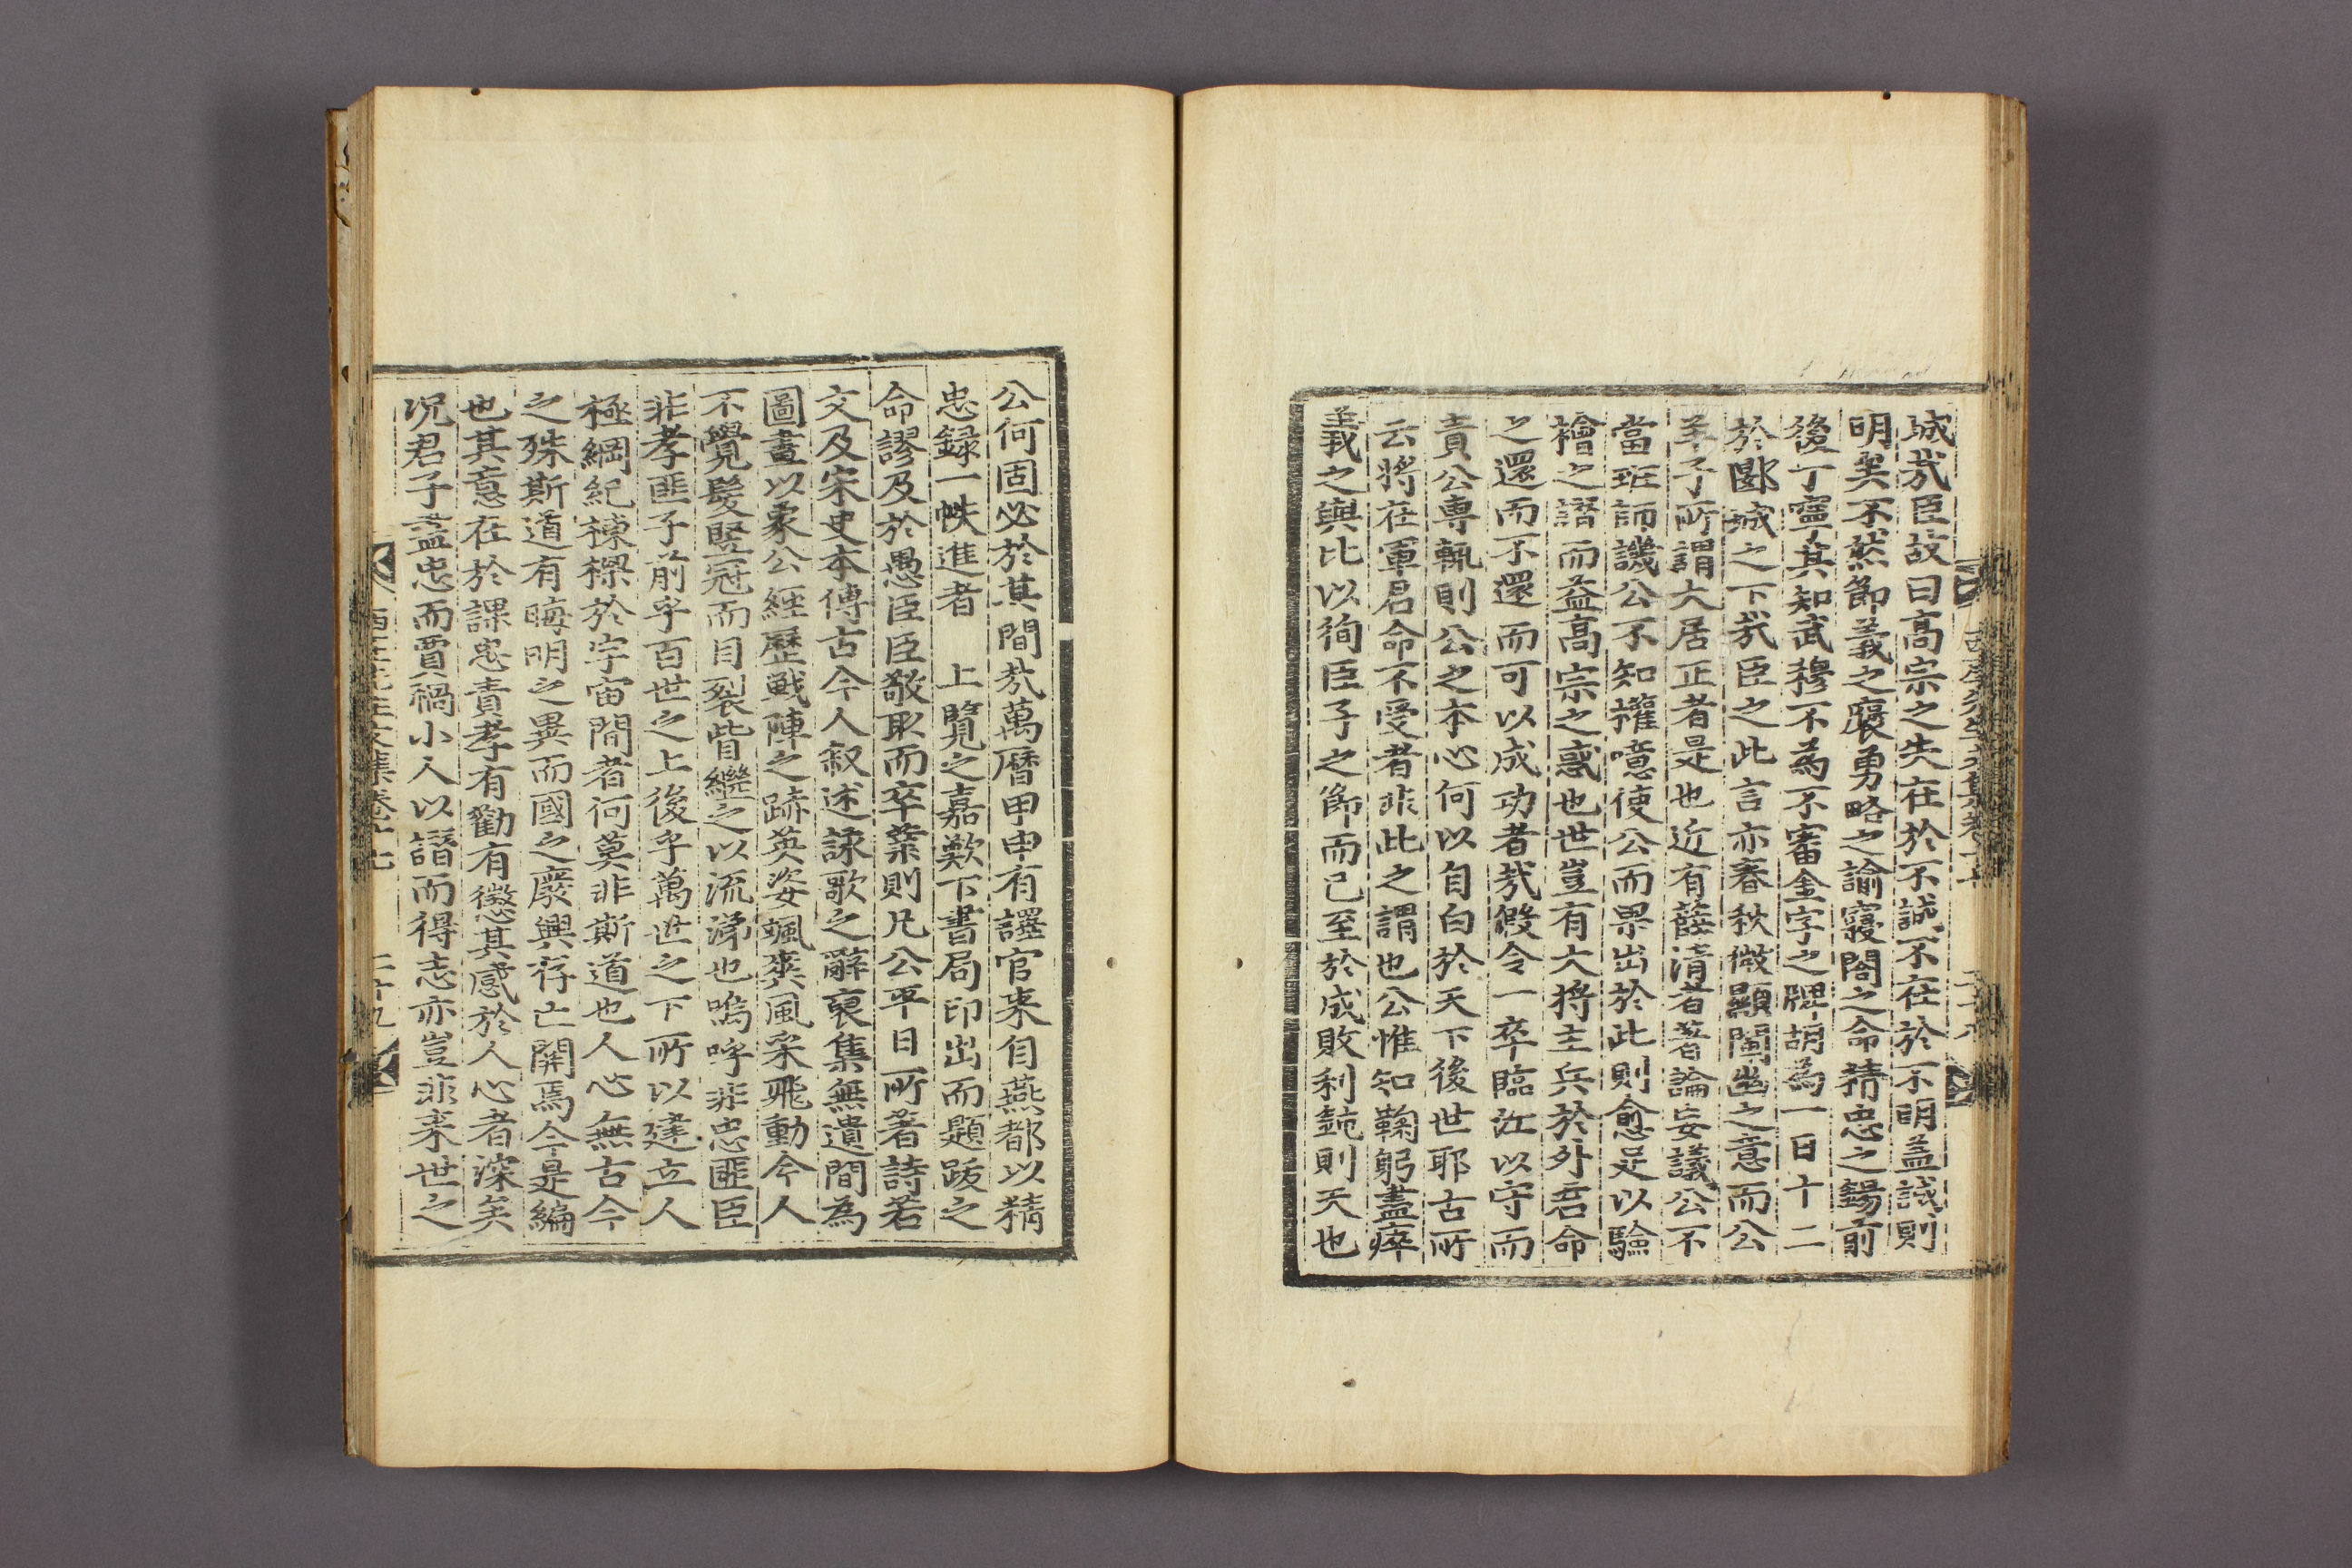 城哉臣故曰高宗之失在於不誠不在於不明盖誠則
明矣不然節義之褒勇略之諭寢閤之命精忠之錫前
後丁寧其知武穆不爲不審金字之牌胡爲一日十二
於郾城之下哉臣之此言亦春秋微顯闡幽之意而公
羊子所謂大居正者是也近有薛清者著論妄議公不
當班師譏公不知權噫使公而果出於此則愈足以驗
檜之譖而益高宗之惑也世豈有大將主兵於外君命
之還而不還而可以成功者哉假令一卒臨江以守而
責公專輒則公之本心何以自白於天下後世耶古所
云將在軍君命不受者非此之謂也公惟知鞠躬盡瘁
義之與比以徇臣子之節而已至於成敗利鈍則天也
西厓先生文集卷十七
二十八
公何固必於其間哉萬曆甲申有譯官来自燕都以精
忠録一帙進者 上覽之嘉歎下書局印出而題跋之
命謬及於愚臣臣敬取而卒業則凡公平日所著詩若
文及宋史本傳古今人叙述詠歌之辭裒集無遺間爲
圖畫以象公經歷戰陣之跡英姿颯爽風采飛動令人
不覺髮竪冠而目裂眥繼之以流涕也嗚呼非忠匪臣
非孝匪子前乎百世之上後乎萬世之下所以建立人
極綱紀棟樑於宇宙間者何莫非斯道也人心無古今
之殊斯道有晦明之異而國之廢興存亡關焉今是編
也其意在於課忠責孝有勸有懲其感於人心者深矣
况君子盡忠而賈禍小人以譖而得志亦豈非衰世之
西厓先生文集卷十七
二十九